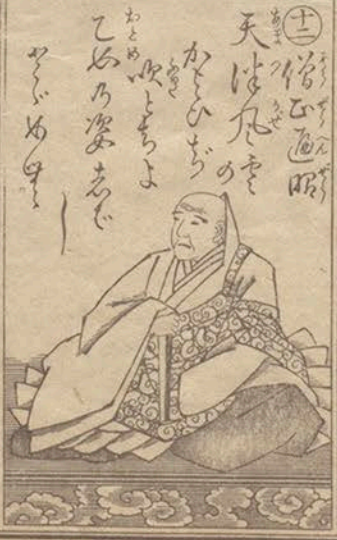 十二 僧正遍昭
天津風雲の
かよひぢ
吹とぢよ
乙女乃姿志ばし
とゞめむ